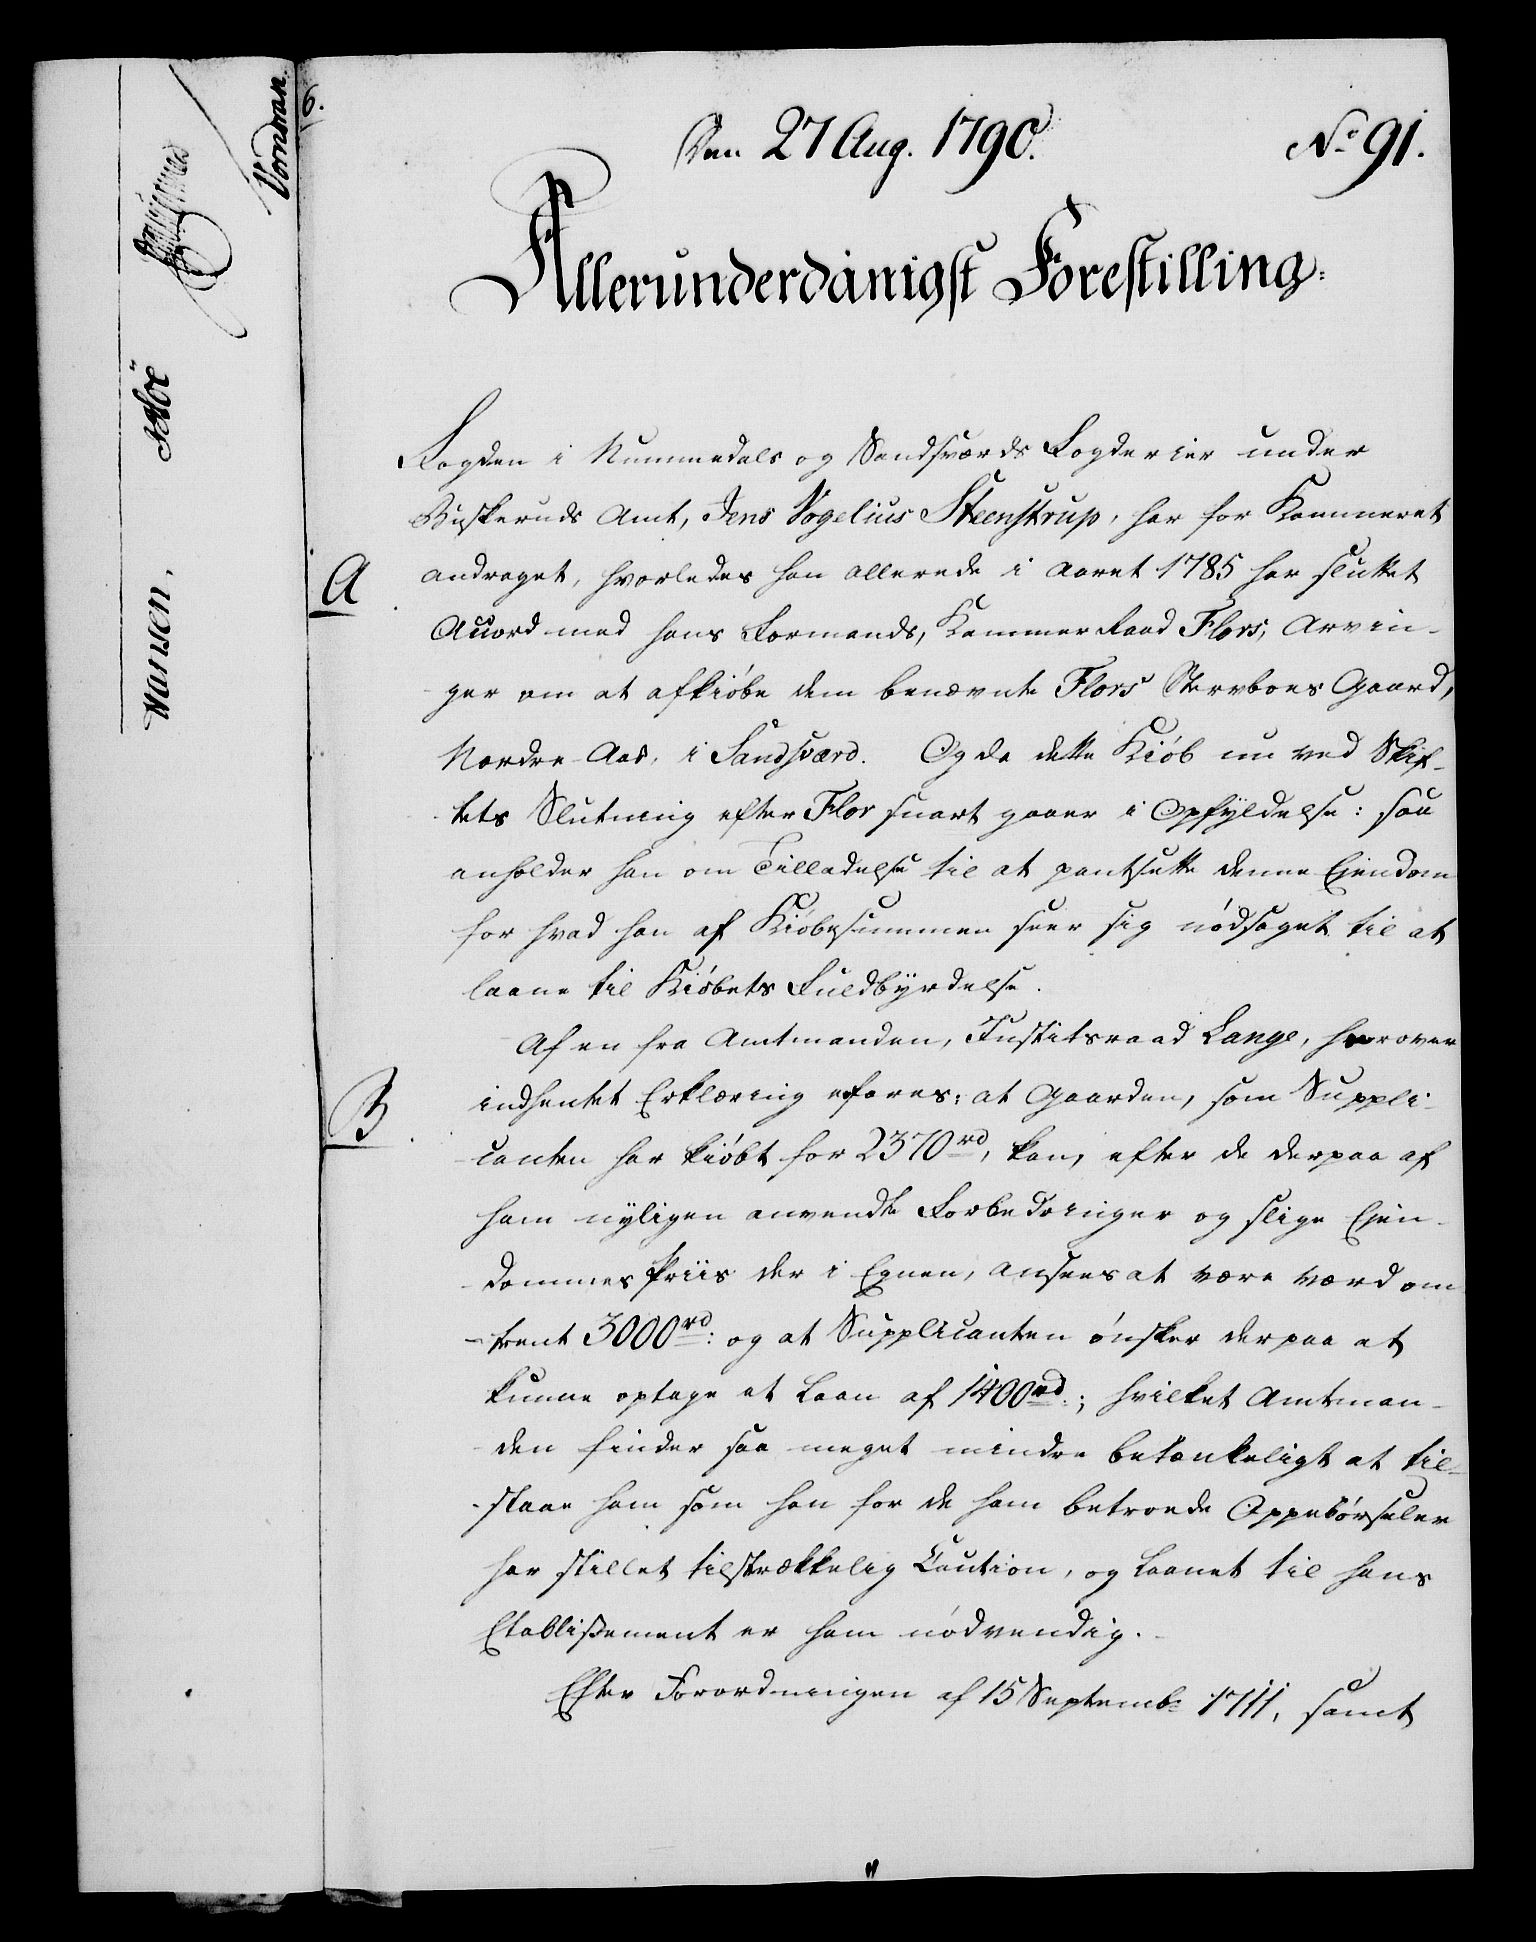 Den 27 Aug. 1790.
No 91.
Allerunderdanigst Forestilling:
Fogden i Nummedals og Sandsværds Fogderier under
Buskeruds Amt, Jens Vogelius Steenstrup, har for Kammeret
A
andraget, hvorledes han allerede i Aaret 1785 har sluttet
Accord med hans Formands, Kammer Raad Flors, Arvin-
ger om at afkiøbe dem benævnte Flors Sterboes Gaard,
Nordre Aas, i Sandsværd. Og da dette Kiøb nu ved Skif-
tets Slutning efter Flor snart gaaer i Opfyldelse: saa
anholder han om Tilladelse til at pantsætte denne Ejendom
for hvad han af Kiøbesummen seer sig nødsaget til at
laane til Kiøbets Fuldbyrdelse.
Af en fra Amtmanden, Justitsraad Lange, herover
B
indhentet Erklæring erfares: at Gaarden, som Suppli-
canten har kiøbt for 2370 rd, kan, efter de derpaa af
ham nyligen anvendte Forbedringer og slige Ejen-
dommes Priis der i Egnen, ansees at være værd om-
trent 3000 rd: og at Supplicanten ønsker derpaa at
kunne optage et Laan af 1400 rd.; hvilket Amtman-
den finder saa meget mindre betænkeligt at til-
staae ham som han for de ham betroede Oppebørseler
har stillet tilstrækkelig Caution, og Laanet til hans
Etablissement er ham nødvendig.
Efter Forordningen af 15 Septembr 1711, samt
6.
Hansen.